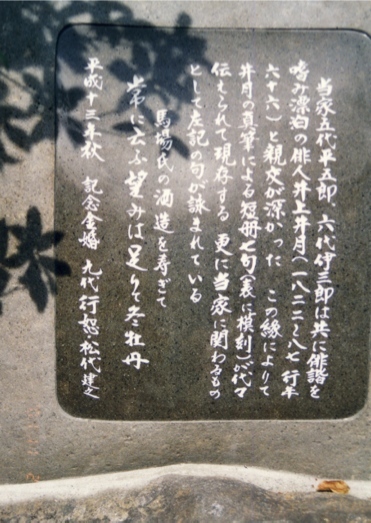 当家五代平五郎、六代伊三郎は共に俳諧を
嗜み漂泊の俳人井上井月(一八二二〜八七 行年
六十六)と親交が深かった この縁によりて
井月の真筆による短冊七句(裏に模刻)が代々
伝えられて現存する 更に当家に関わるもの
として左記の句が詠まれている
馬場氏の酒造を寿ぎて
常に云ふ望みは足りて冬牡丹
平成十三年秋 記念金婚 九代 行恕・松代 建之